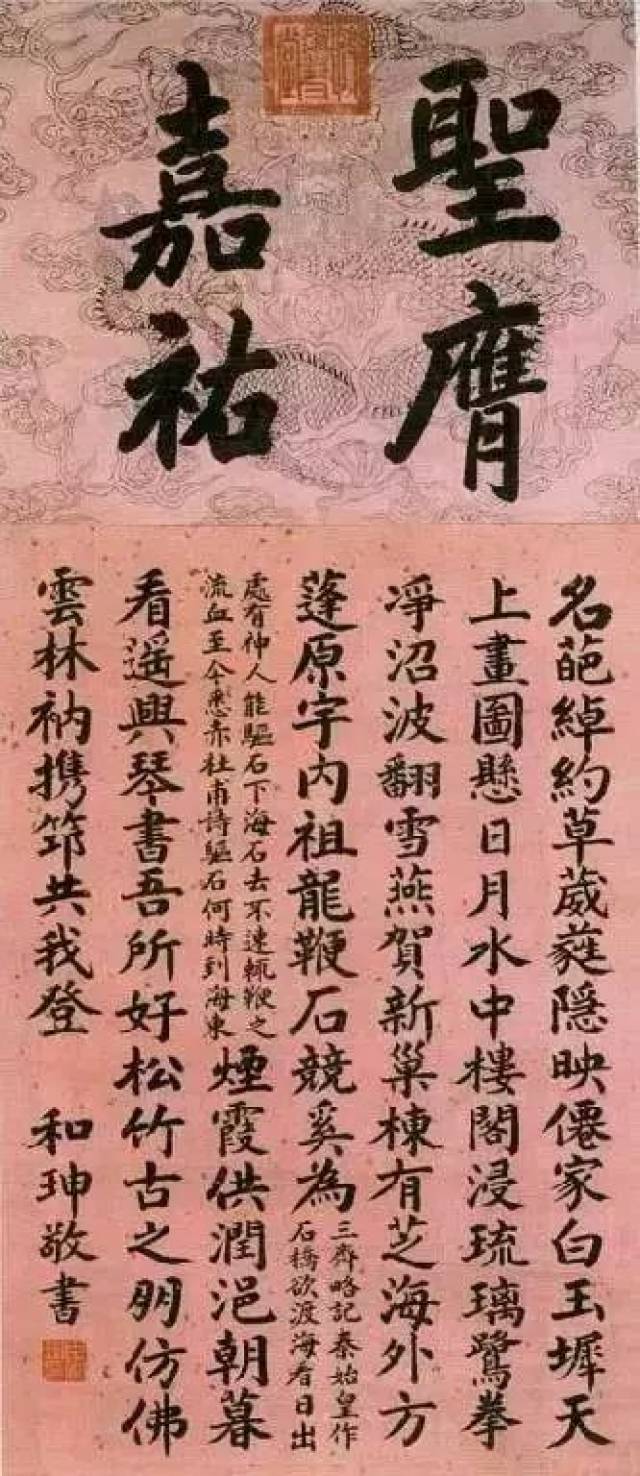 聖膺
嘉祐
名葩綽約草葳蕤隠映僊家白玉墀天
上畫圖懸日月水中樓閣浸琉璃鷺拳
淨沼波翻雪燕賀新巢棟有芝海外方
蓬原宇内祖龍鞭石競奚為
三齊略記秦始皇作
石橋欲渡海看日出
處有神人能驅石下海石去不速輒鞭之
流血至今悉赤杜甫詩驅石何時到海東
煙霞供潤浥朝暮
看遥興琴書吾所好松竹古之朋仿佛
雲林衲携筇共我登
和珅敬書